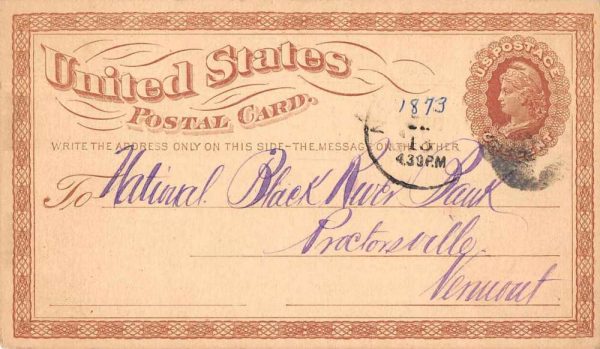 United States
POSTAL CARD.
U.S. POSTAGE
ONE CENT
1873
13
4.30 P.M
WRITE THE ADDRESS ONLY ON THIS SIDE-THE MESSAGE ON THE OTHER
To National Black River Bank
Proctorsville
Vermont